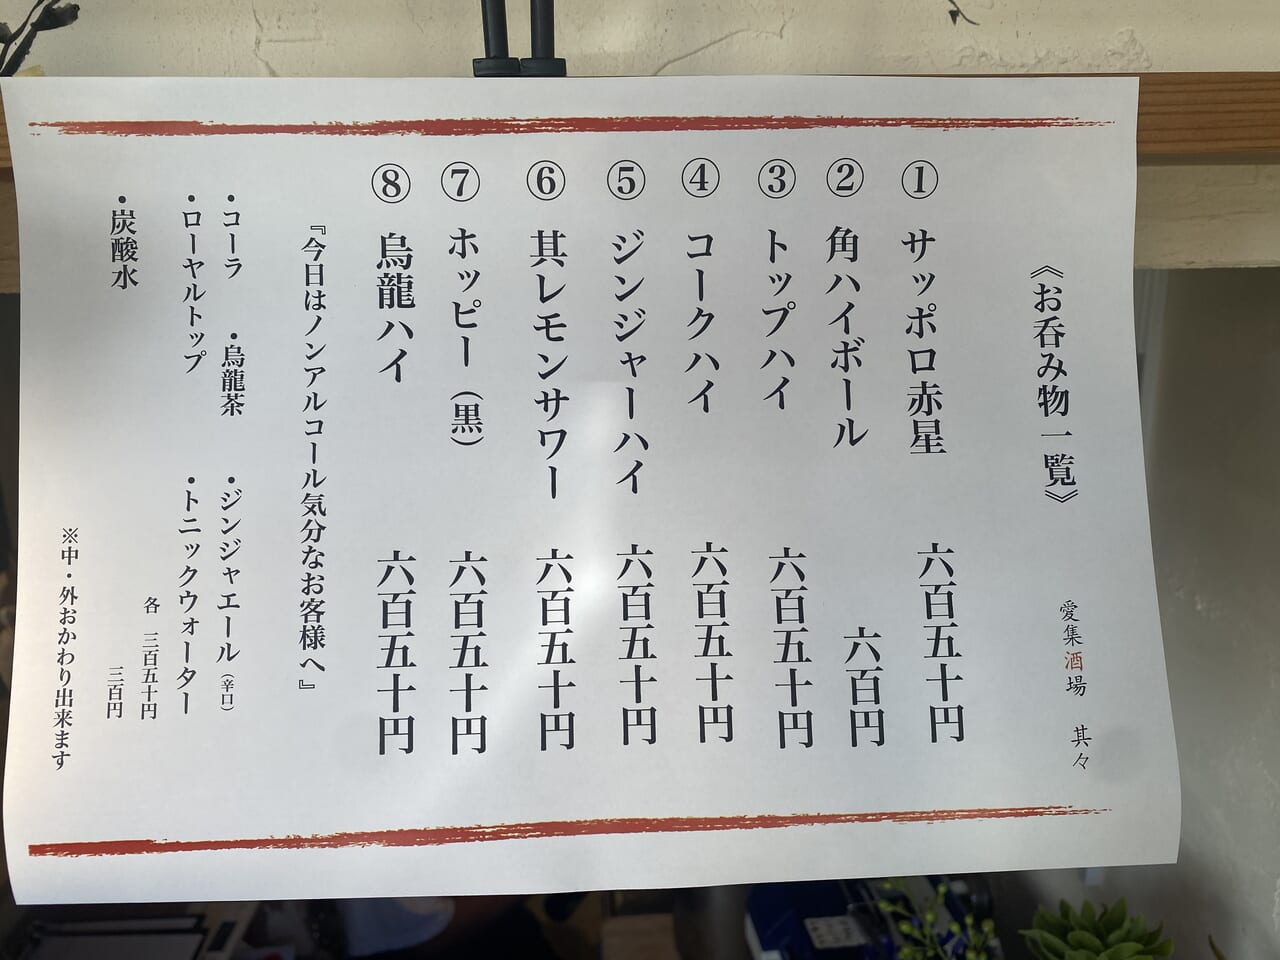 《お呑み物一覧》
愛集酒場 其々
① サッポロ赤星 六百五十円
② 角ハイボール 六百円
③ トップハイ 六百五十円
④ コークハイ 六百五十円
⑤ ジンジャーハイ 六百五十円
⑥ 其レモンサワー 六百五十円
⑦ ホッピー（黒） 六百五十円
⑧ 烏龍ハイ 六百五十円
『今日はノンアルコール気分なお客様へ』
・コーラ ・烏龍茶 ・ジンジャエール（辛口）
・ローヤルトップ ・トニックウォーター
各 三百五十円
・炭酸水 三百円
※中・外おかわり出来ます